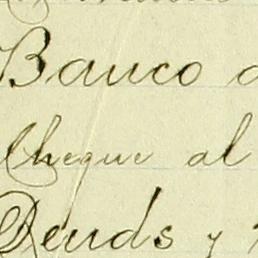 Banco
Cheque al
Deuds y